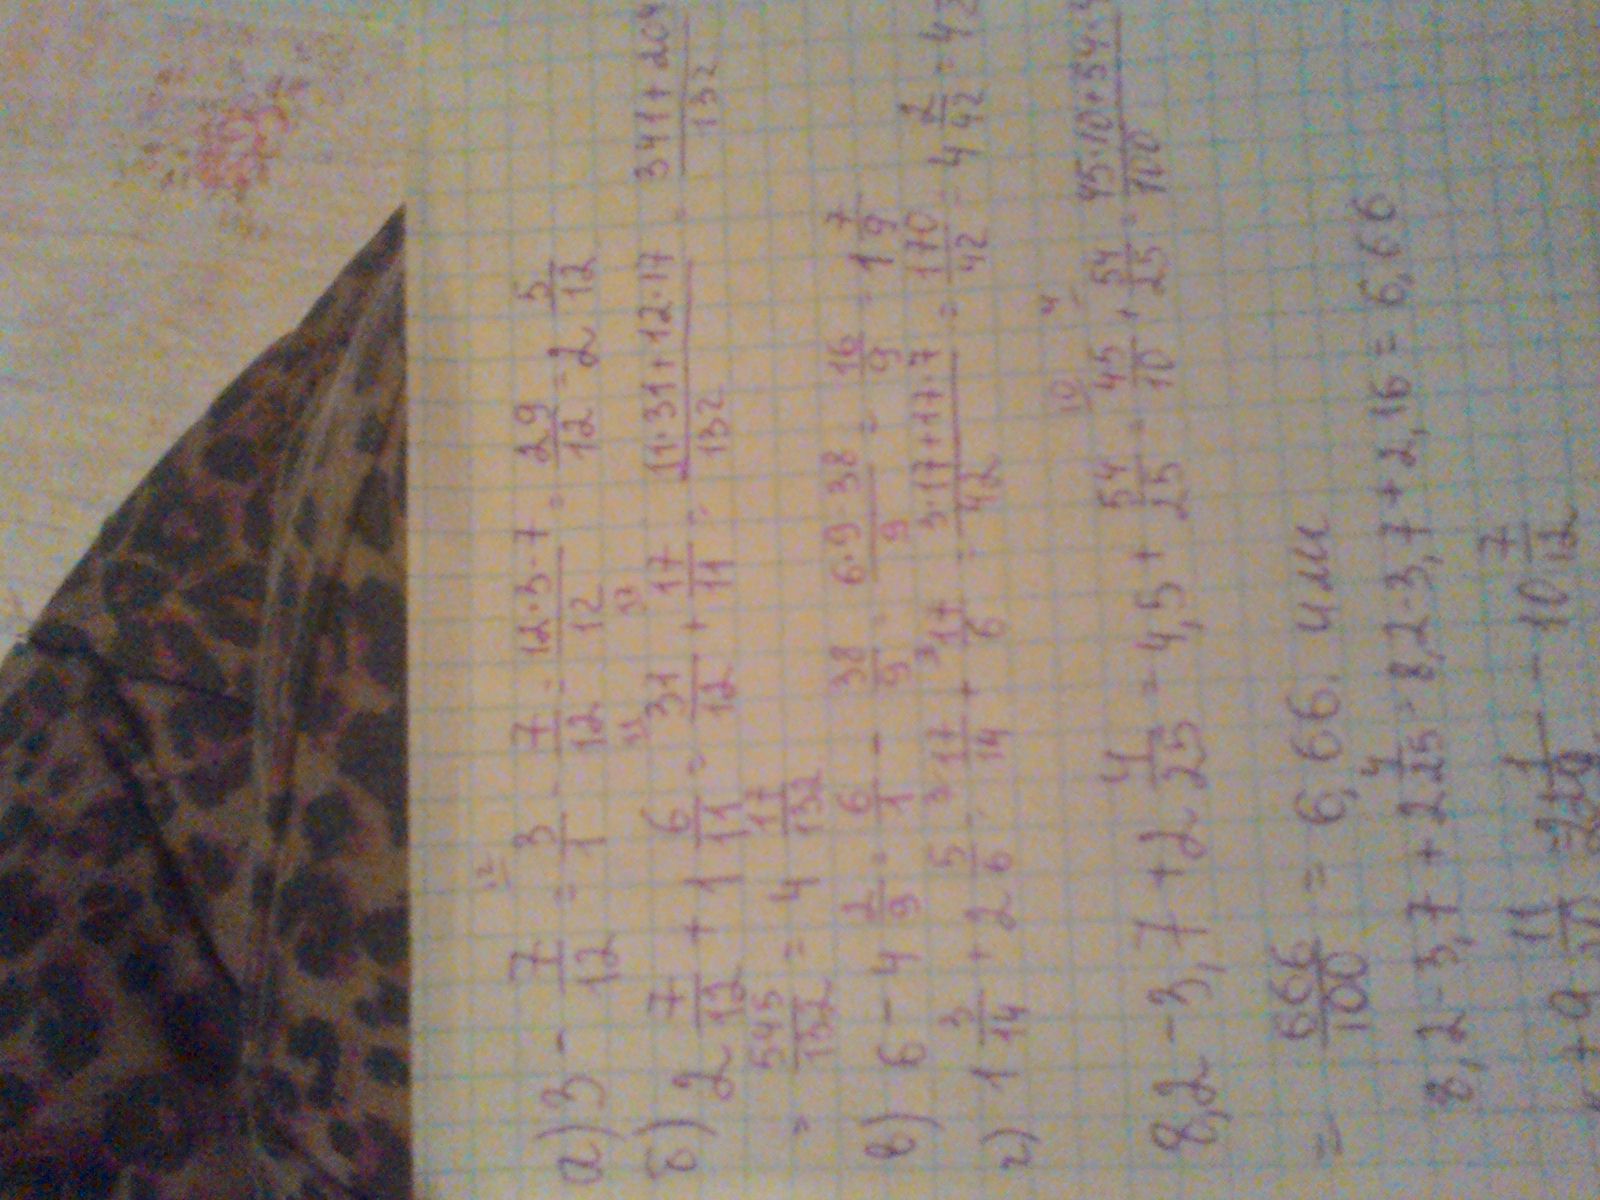 а) 3 - 7/12 = 3/1 - 7/12 = 12·3-7/12 = 29/12 = 2 5/12
б) 2 7/12 + 1 6/11 = 31/12 + 17/11 = 11·31+12·17/132 = 341+204/132
= 545/132 = 4 17/132
в) 6 - 4 2/9 = 6/1 - 38/9 = 6·9-38/9 = 16/9 = 1 7/9
г) 1 3/14 + 2 5/6 = 17/14 + 17/6 = 3·17+17·7/42 = 170/42 = 4 2/42 = 4
8,2 - 3,7 + 2 4/25 = 4,5 + 54/25 = 45/10 + 54/25 = 45·10+54·4/100
= 666/100 = 6,66 или
8,2-3,7+2 4/25 = 8,2-3,7+2,16 = 6,66
+ 9 11/20 - 10 7/12